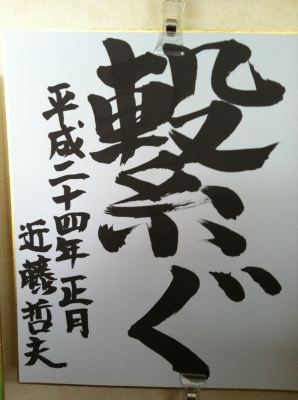 繋ぐ
平成二十四年正月
近藤哲夫